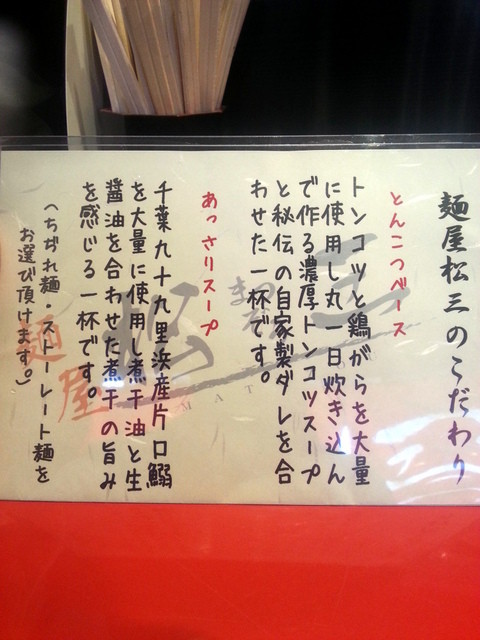 麺屋松三のこだわり
とんこつベース
トンコツと鶏がらを大量
に使用し丸一日炊き込ん
で作る濃厚トンコツスープ
と秘伝の自家製ダレを合
わせた一杯です。
あっさりスープ
千葉九十九里浜産片口鰯
を大量に使用し煮干油と生
醤油を合わせた煮干の旨み
を感じる一杯です。
(ちぢれ麺・ストーレート麺を
お選び頂けます。)
麺屋
松三